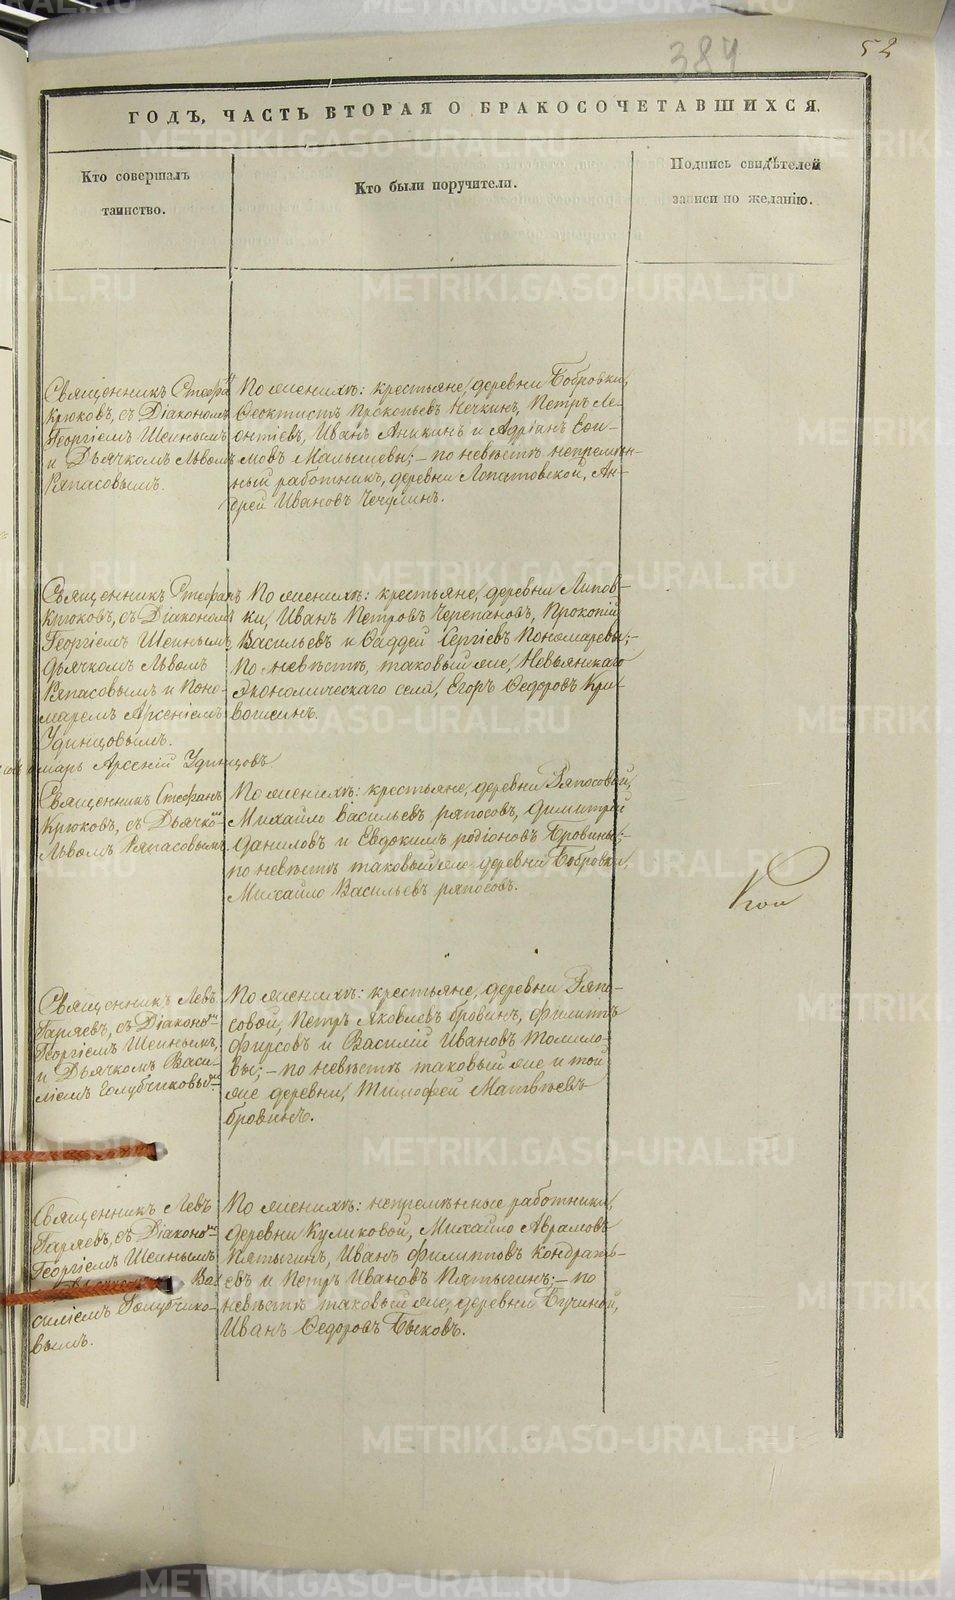 384
52
ГОДЪ, ЧАСТЬ ВТОРАЯ О БРАКОСОЧЕТАВШИХСЯ.
Кто совершалъ
таинство.
Кто были поручители.
Подпись свидѣтелей
записи по желанію.
Священникъ Стефанъ
Крюковъ, съ Діакономъ
Георгіемъ Шеинымъ
и Дьячкомъ Львомъ
Ряпасовымъ.
По женихѣ: крестьяне, деревни Бобровки,
Феоктистъ Прокопьевъ Нечкинъ, Петръ Ле-
онтіевъ, Иванъ Аникинъ и Адріанъ
мовъ Малышевы; – по невѣстѣ непремѣн-
ный работникъ, деревни Лопатовской, Ан-
дрей Ивановъ
Священникъ Стефанъ
Крюковъ, съ Діакономъ
Георгіемъ Шеинымъ,
Дьячкомъ Львомъ
Ряпасовымъ и Поно-
маремъ Арсеніемъ
Удинцовымъ.
По женихѣ: крестьяне, деревни Липов-
ки, Иванъ Петровъ Черепановъ, Прокопій
Васильевъ и Фаддей Сергіевъ Пономаревы; –
По невѣстѣ, таковый же, Невьянскаго
экономическаго села, Егоръ Федоровъ Кри-
воногинъ.
марь Арсеній Удинцовъ
Священникъ Стефанъ
Крюковъ, съ Дьячко-
Львомъ Ряпасовымъ
По женихѣ: крестьяне, деревни Ряпосовой,
Михайло Васильевъ ряпосовъ, Димитрій
Даниловъ и Евдокимъ родіоновъ Бровины; –
по невѣстѣ таковый же деревни Бобровки,
Михайло Васильевъ ряпосовъ.
Священникъ Левъ
Гаряевъ, съ Діаконо-
Георгіемъ Шеинымъ,
и Дьячкомъ Васи-
ліемъ Голубчиковы-
По женихѣ: крестьяне, деревни Ряпо-
совой, Петръ Яковлевъ бровинъ, Филиппъ
Фирсовъ и Василій Ивановъ Томило-
вы; – по невѣстѣ таковый же и той
же деревни, Тимофей Матвѣевъ
бровинъ.
Священникъ Левъ
Гаряевъ, съ Діаконо-
Георгіемъ Шеинымъ
Ва-
силіемъ Голубчико-
вымъ.
По женихѣ: непремѣнные работники,
деревни Куликовой, Михайло Аврамовъ
Пятыгинъ, Иванъ Филипповъ Кондрать-
евъ и Петръ Ивановъ Пятыгинъ; – по
невѣстѣ таковый же, деревни Бучиной,
Иванъ Федоровъ Быковъ.